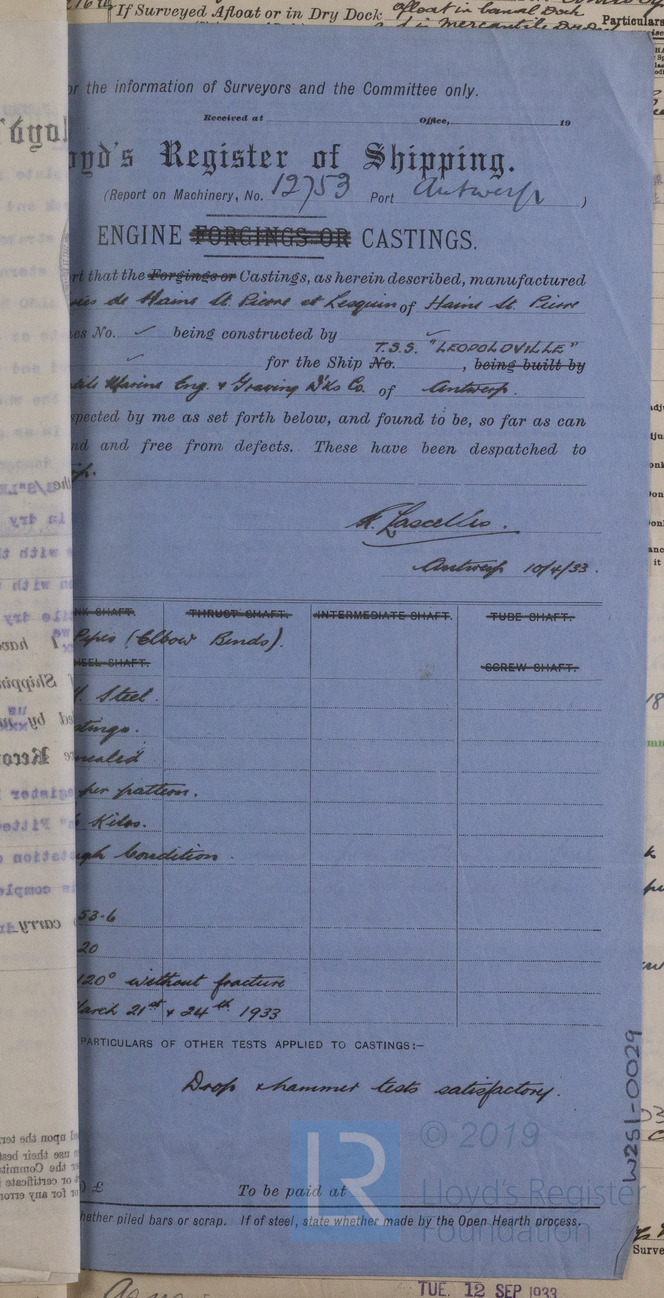 If Surveyed Afloat or in Dry Dock afloat in Canal Dock
Particulars
or the information of Surveyors and the Committee only.
Received at Office, 19
oyd's Register of Shipping.
(Report on Machinery, No. 12753 Port Antwerp )
ENGINE FORGINGS OR CASTINGS.
rt that the Forgings or Castings, as herein described, manufactured
de Haine St. Pierre et Lesquin of Haine St. Pierre
es No. ✓ being constructed by ✓
T.S.S. "LEOPOLDVILLE"
✓ for the Ship No. , being built by
Marine Eng. & Graving D'ks Co. of Antwerp.
spected by me as set forth below, and found to be, so far as can
nd and free from defects. These have been despatched to
Antwerp 10/4/33.
NK SHAFT. THRUST SHAFT. INTERMEDIATE SHAFT. TUBE SHAFT.
Pipes (Elbow Bends).
HEEL SHAFT. SCREW SHAFT.
Steel
stings.
nealed
per pattern.
Kilos.
ugh Condition.
53-6
20
120° without fracture
March 21st & 24th 1933
PARTICULARS OF OTHER TESTS APPLIED TO CASTINGS:—
Drop & hammer tests satisfactory.
© 2019
LR
Lloyd's Register
Foundation
£ To be paid at
hether piled bars or scrap. If of steel, state whether made by the Open Hearth process.
W251-0029
TUE. 12 SEP 1933